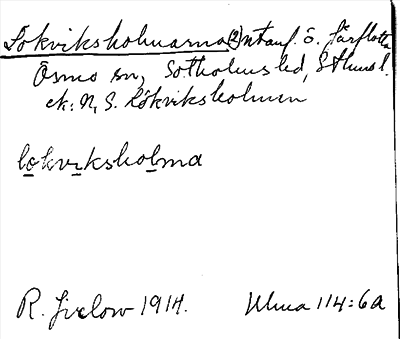 Lökviksholmarna (2) ö. Järflotta
Ösmo sn, Sotholms hd, Sthms l.
ek: N, S. Lökviksholmen
lo̲kvi̲kshol̲ma
R. 1914. Ulma 114:6a